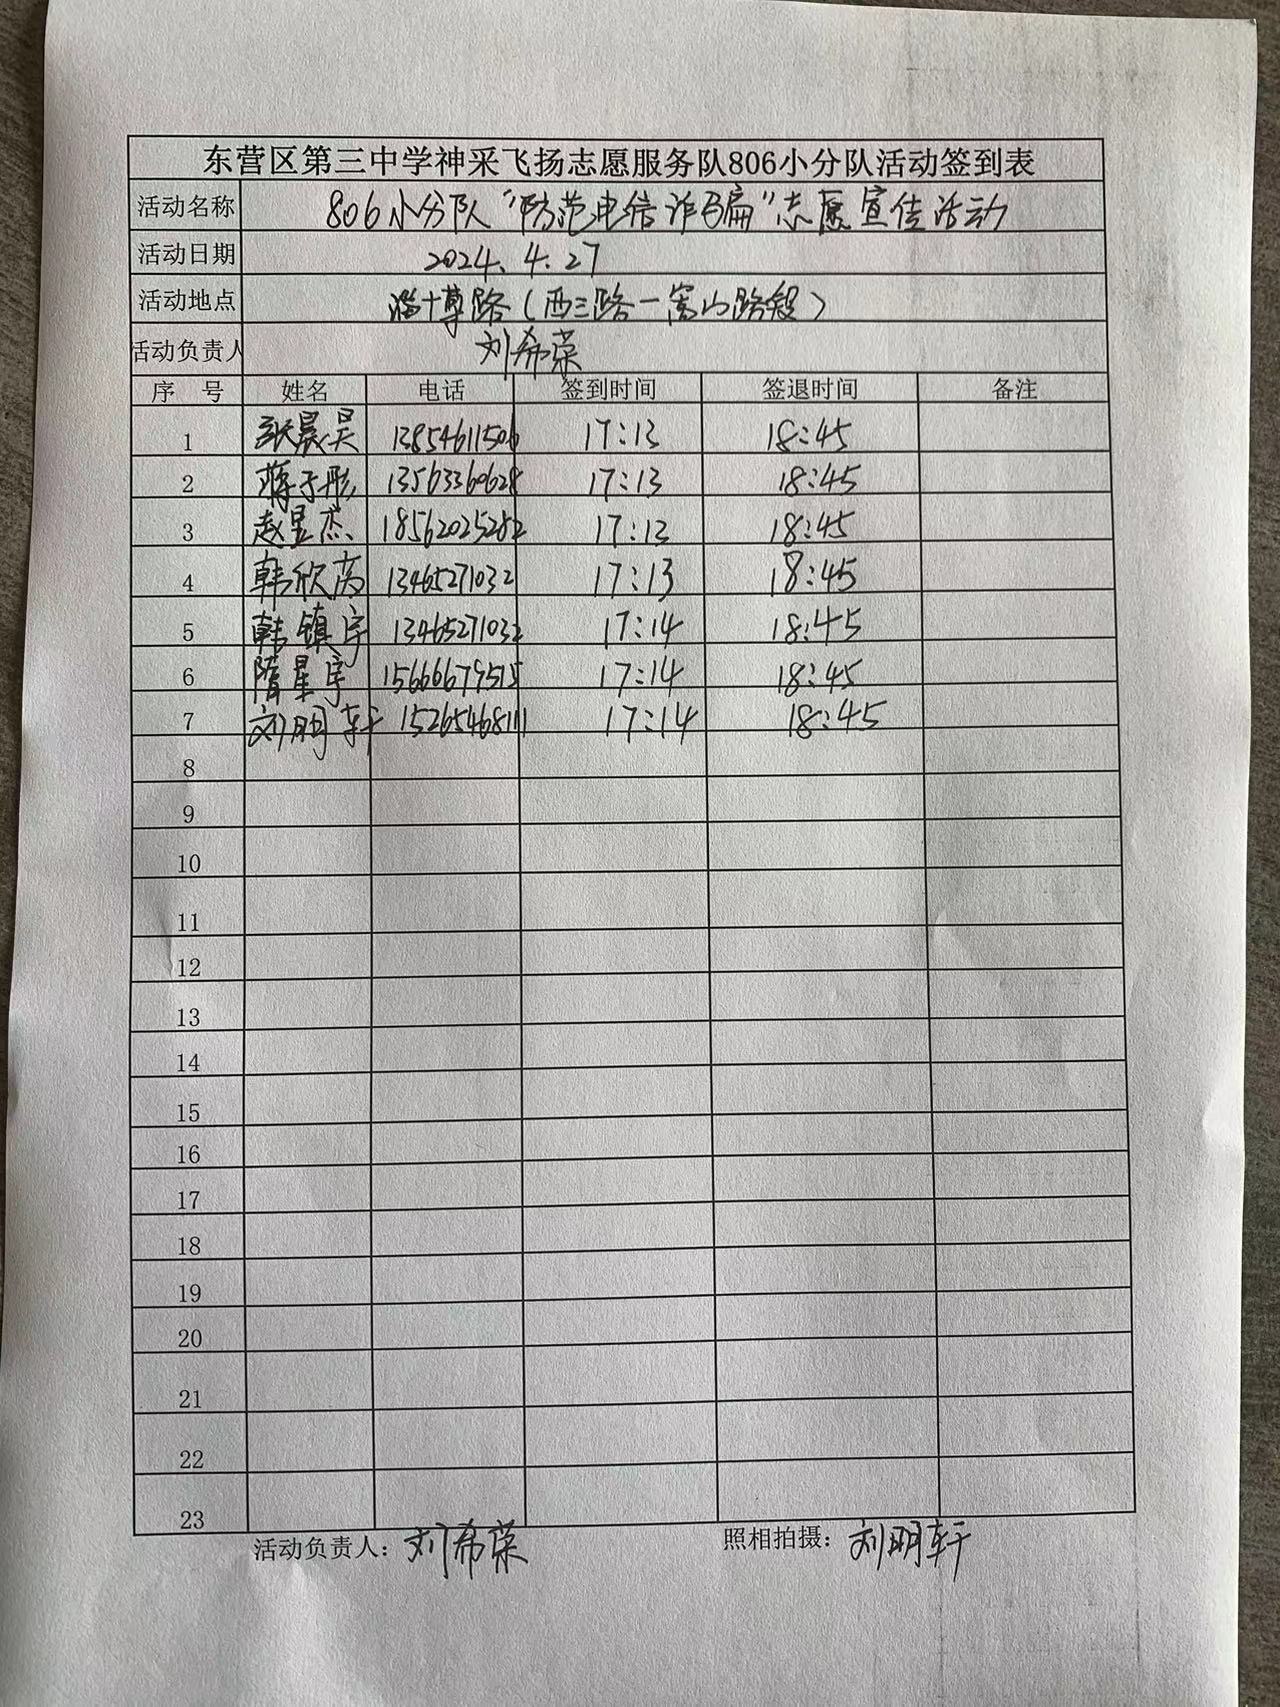 东营区第三中学神采飞扬志愿服务队806小分队活动签到表
活动名称 806小分队“防范电信诈骗”志愿宣传活动
活动日期 2024.4.27
活动地点 淄博路(西三路一富山路段)
活动负责人 刘希荣
序 号 姓名 电话 签到时间 签退时间 备注
1 张晨昊 13854611506 17:13 18:45
2 蒋子彤 13563360628 17:13 18:45
3 赵显杰 18562025282 17:13 18:45
4 韩欣芮 13465271032 17:13 18:45
5 韩镇宇 13465271032 17:14 18:45
6 隋星宇 15666679515 17:14 18:45
7 刘明轩 15265468111 17:14 18:45
8
9
10
11
12
13
14
15
16
17
18
19
20
21
22
23
活动负责人：刘希荣 照相拍摄：刘明轩